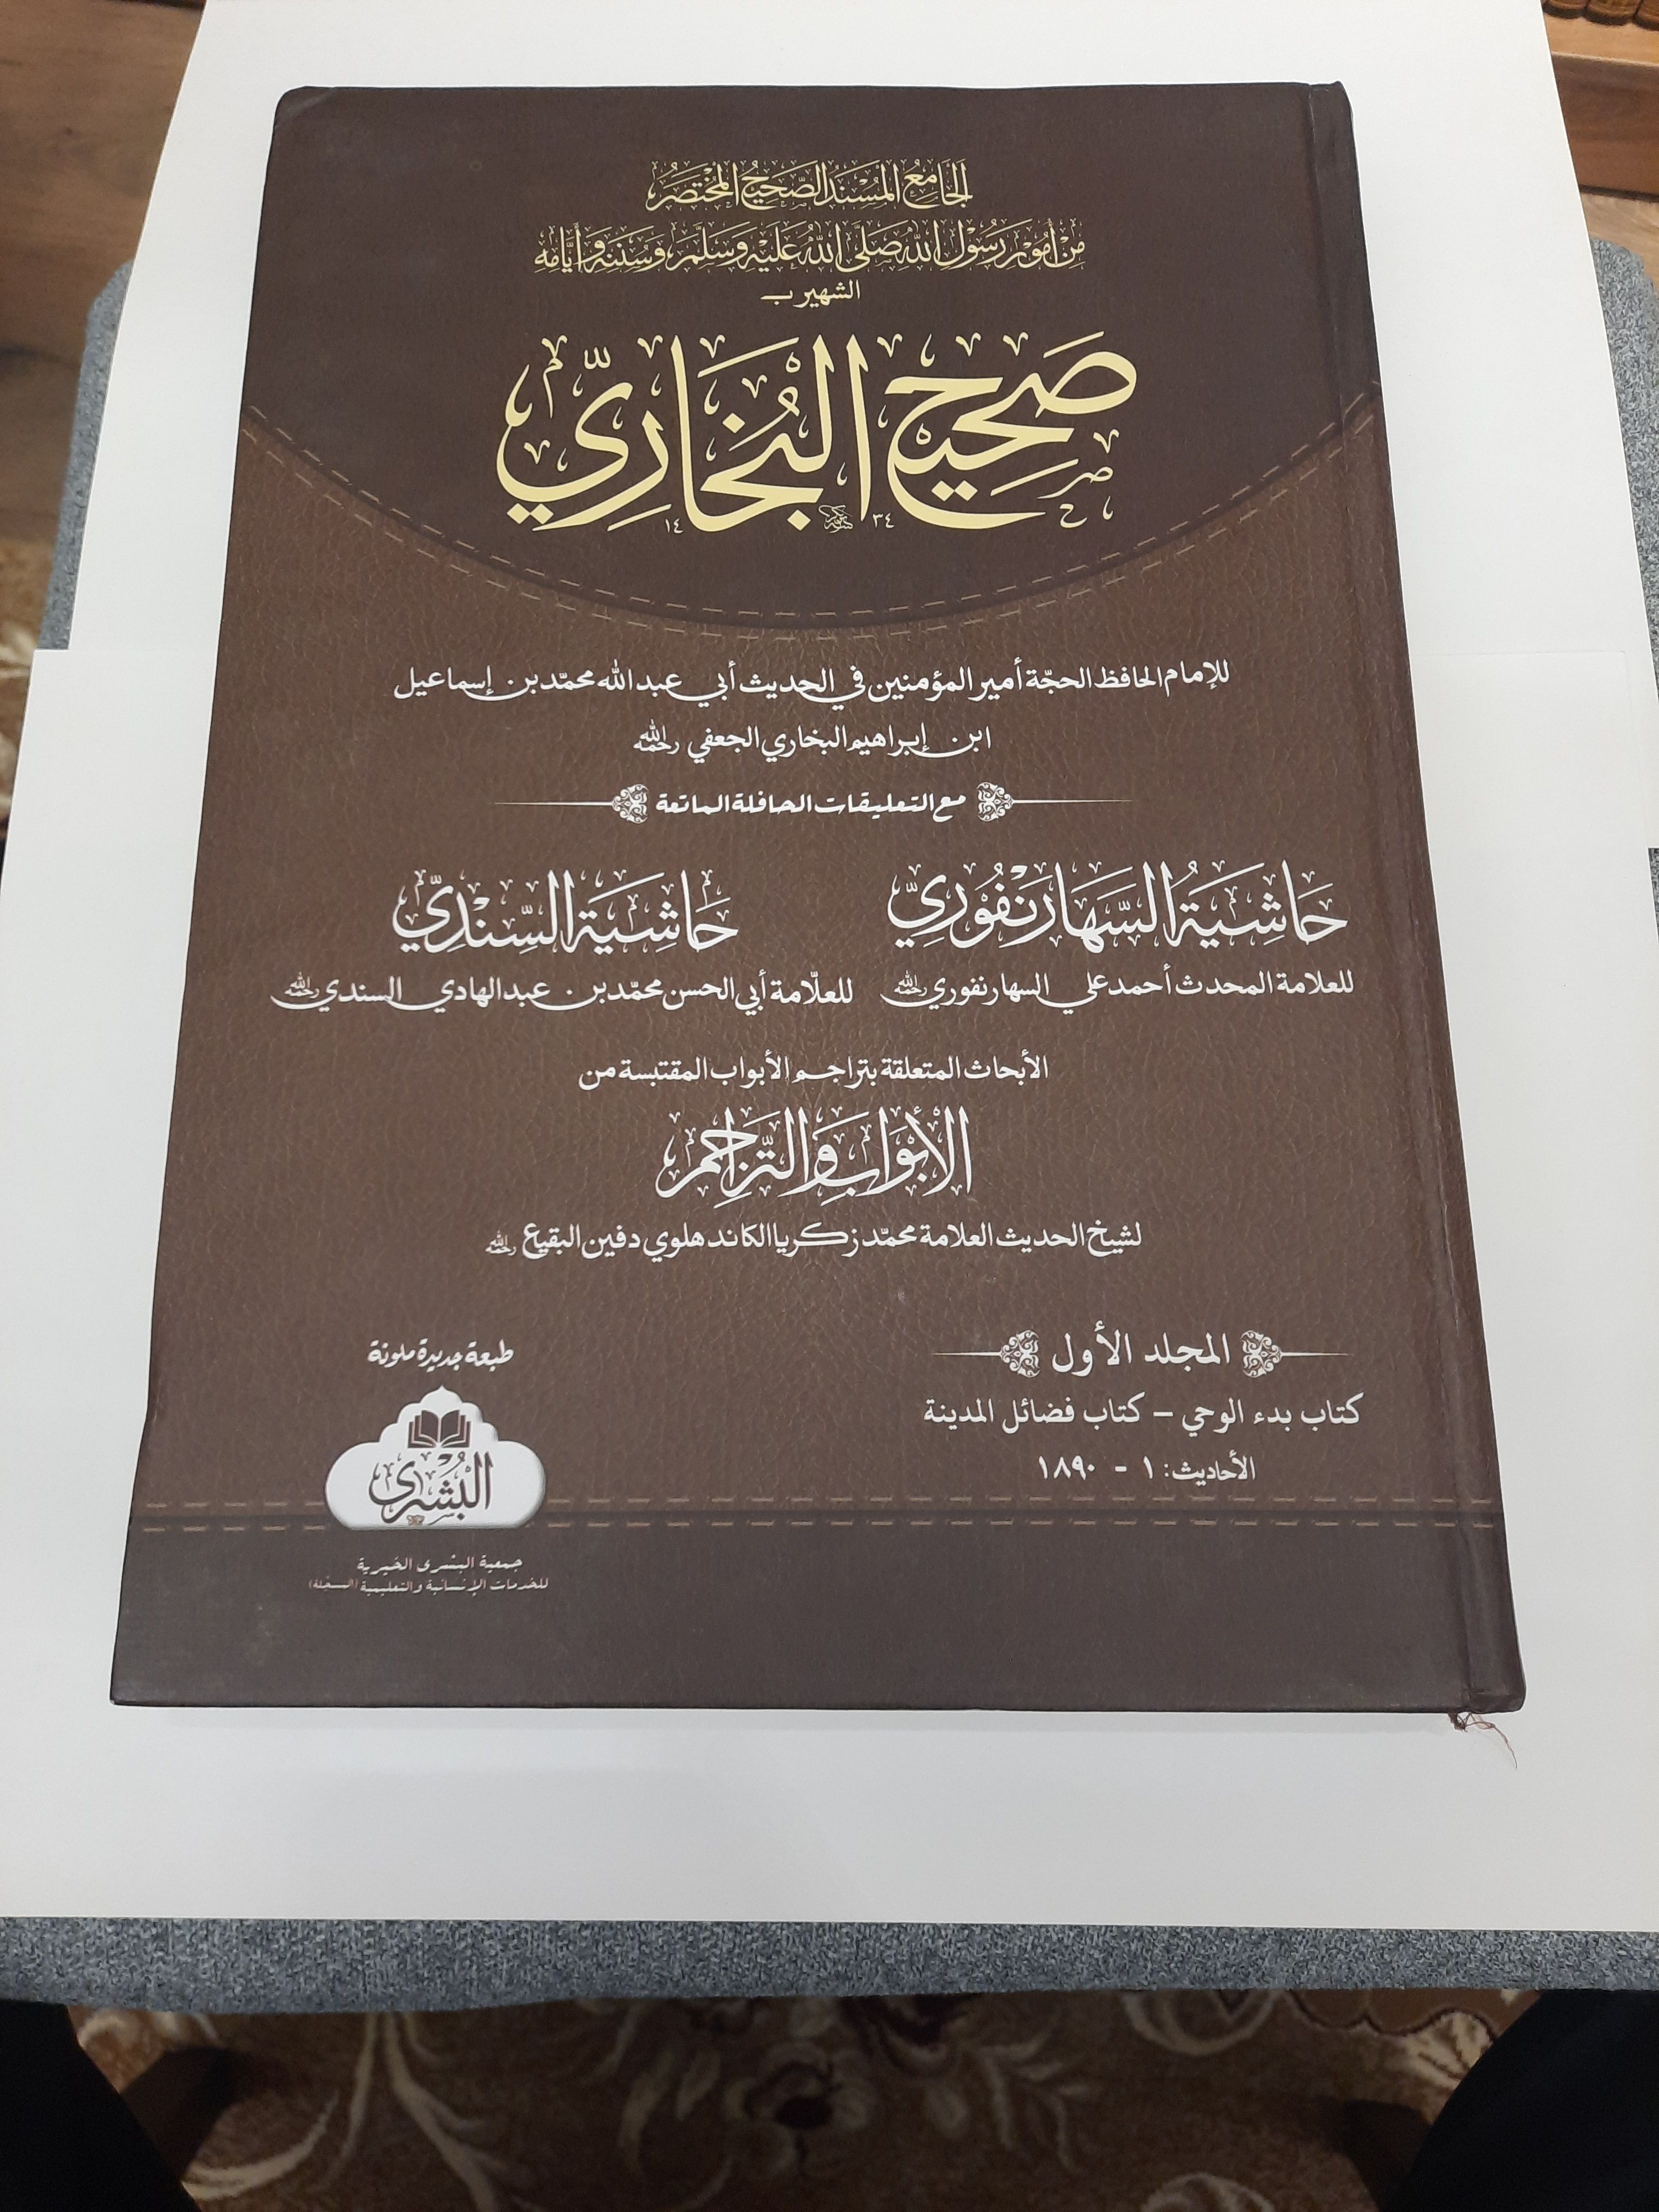 الجَامِعُ المُسْنَدُ الصَّحِيحُ المُخْتَصَرُ
مِنْ أُمُورِ رَسُولِ اللهِ صَلَّى اللهُ عَلَيْهِ وَسَلَّمَ وَسُنَنِهِ وَأَيَّامِهِ
الشهير ب
صَحِيحُ البُخَارِيِّ
١٤ ٣٤
للإمام الحافظ الحجّة أمير المؤمنين في الحديث أبي عبد الله محمّد بن إسماعيل
ابن إبراهيم البخاري الجعفي رحمه الله
مع التعليقات الحافلة الماتعة
حَاشِيَةُ السَّهَارَنْفُوْرِيِّ
للعلامة المحدث أحمد علي السهارنفوري رحمه الله
حَاشِيَة السِّنْدِيِّ
للعلّامة أبي الحسن محمّد بن عبد الهادي السندي رحمه الله
الأبحاث المتعلقة بتراجم الأبواب المقتبسة من
الأَبْوَابِ وَالتَّرَاجِمِ
لشيخ الحديث العلامة محمّد زكريا الكاندهلوي دفين البقيع رحمه الله
المجلد الأول
كتاب بدء الوحي – كتاب فضائل المدينة
الأحاديث: ١ - ١٨٩٠
طبعة جديدة ملونة
البُشْرى
جمعية البشرى الخيرية
للخدمات الإنسانية والتعليمية (المسجّلة)